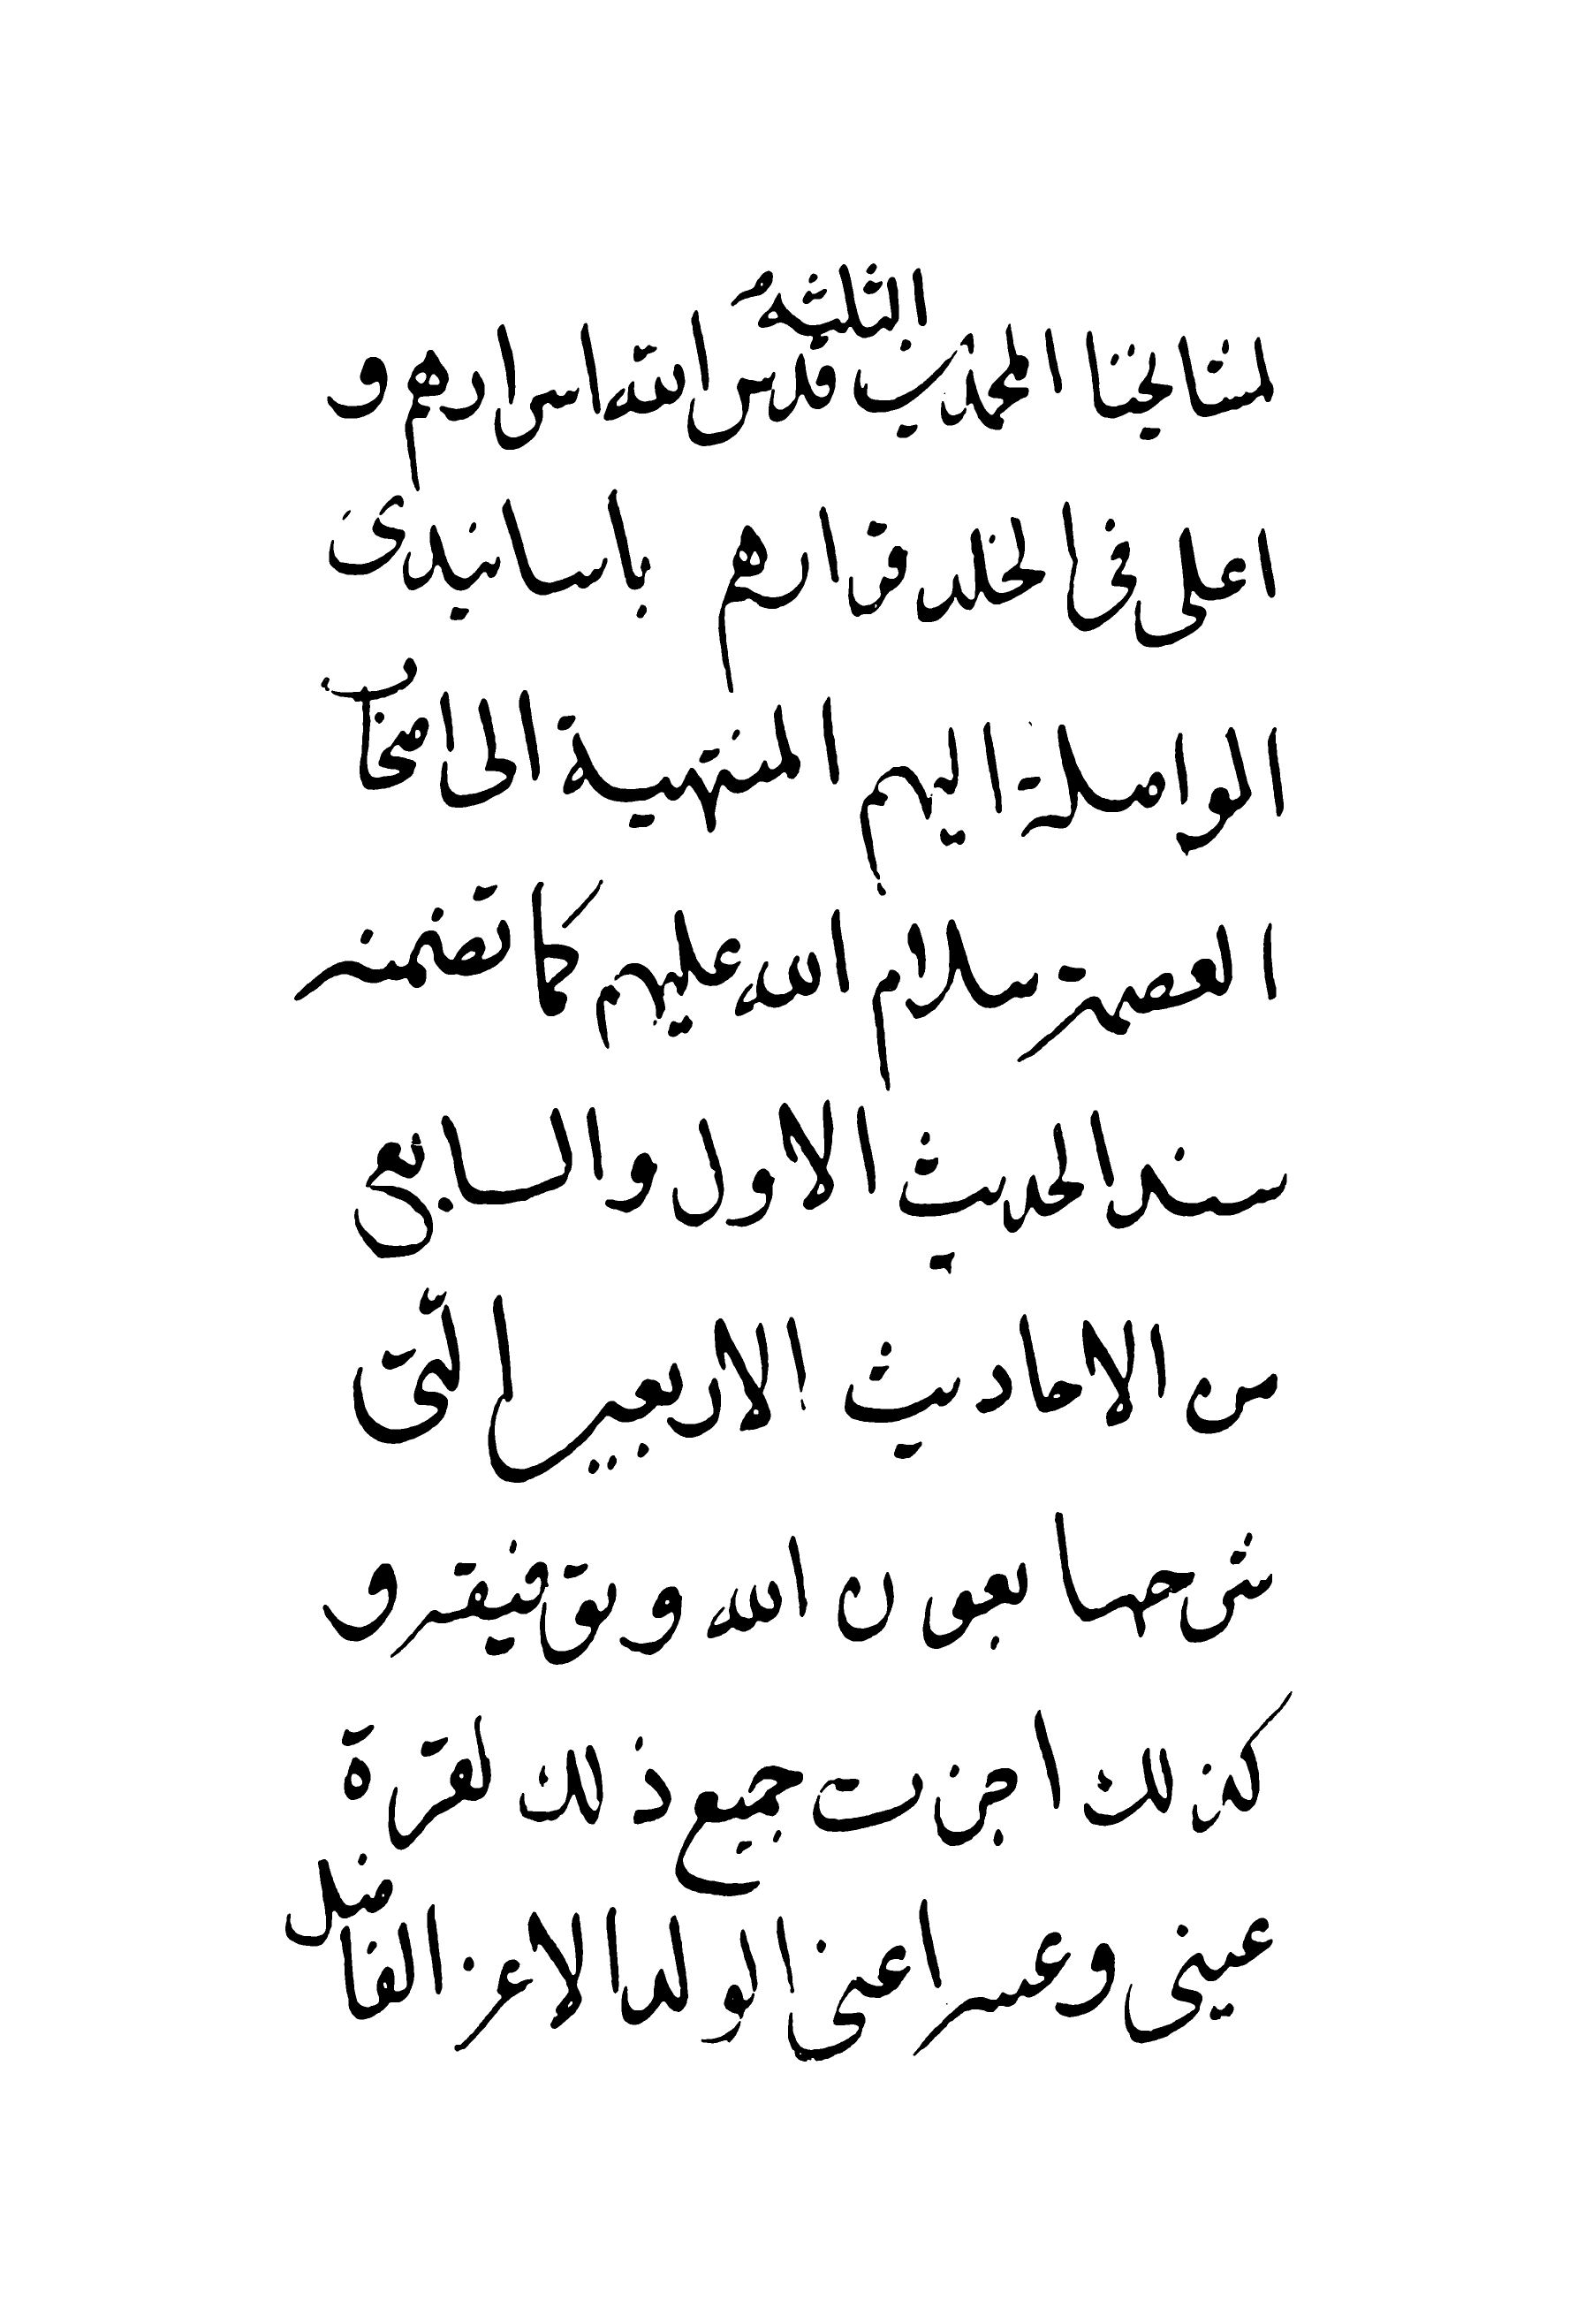 لمشايخنا المحمدين الثلثة قدس الله اسرارهم و
اعلى فى الخلد قرارهم باسانيدى
الواصلة اليهم المنتهية الى اصحاب
العصمة سلام الله عليهم كما تضمنه
سند الحديث الاول والسابع
من الاحاديث الاربعين التى
شرحها بعون الله وتوفيقه و
كذلك اجزت جميع ذلك لقرة
عينى و اعنى الولد الاعز الفاضل